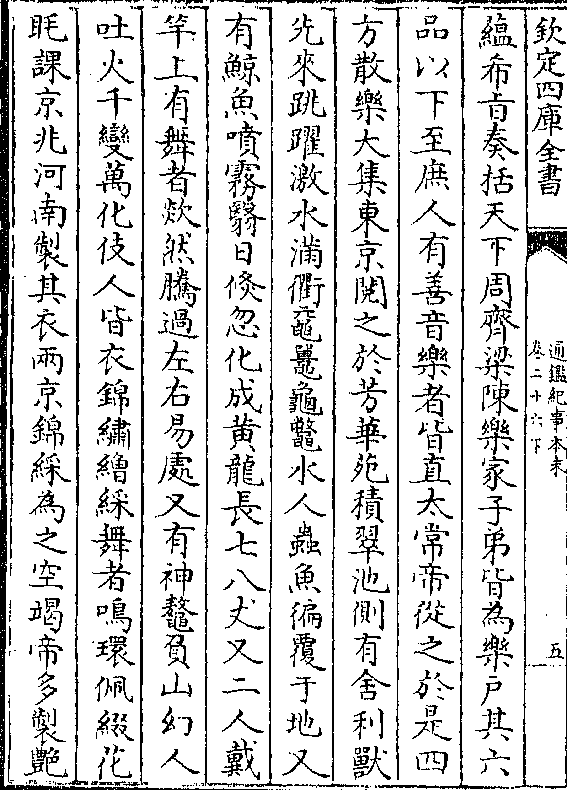 欽定四庫全書
通鑑紀事本末
卷二十六下
五
蘊希旨奏括天下周齊梁陳樂家子弟皆為樂户其六
品以下至庶人有善音樂者皆直太常帝從之於是四
方散樂大集東京閱之於芳華苑積翠池側有舍利獸
先來跳躍激水滿衢黿鼉龜鼈水人蟲魚徧覆于地又
有鯨魚噴霧翳日倐忽化成黄龍長七八丈又二人戴
竿上有舞者欻然騰過左右易處又有神鼇負山幻人
吐火千變萬化伎人皆衣錦繡繒綵舞者鳴環佩綴花
毦課京兆河南製其衣兩京錦綵為之空竭帝多製艶